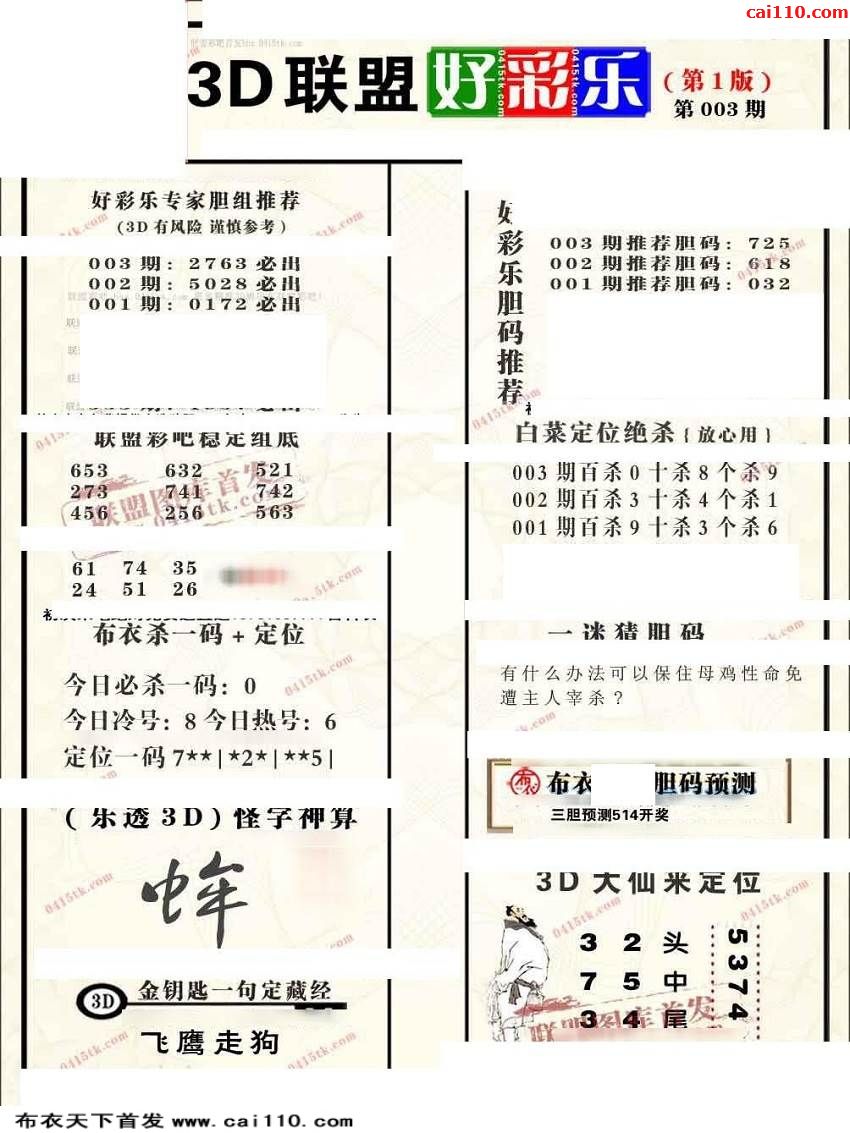 cai110.com
3D联盟好彩乐(第1版)
第003期
好彩乐专家胆组推荐
(3D有风险 谨慎参考)
003期: 2763必出
002期: 5028必出
001期: 0172必出
联盟彩吧稳定组底
653 632 521
273 741 742
456 256 563
61 74 35
24 51 26
布衣杀一码+定位
今日必杀一码: 0
今日冷号: 8 今日热号: 6
定位一码7**|*2*|**5|
(乐透3D)怪字神算
3D 金钥匙一句定藏经
飞鹰走狗
好彩乐胆码推荐
003期推荐胆码: 725
002期推荐胆码: 618
001期推荐胆码: 032
白菜定位绝杀{放心用}
003期百杀0十杀8个杀9
002期百杀3十杀4个杀1
001期百杀9十杀3个杀6
一迷猜胆码
有什么办法可以保住母鸡性命免
遭主人宰杀?
布衣 胆码预测
三胆预测514开奖
3D大仙来定位
3 2 头
7 5 中
3 4 尾
5374
联盟图库首发
0415tk.com
布衣天下首发 www.cai110.com